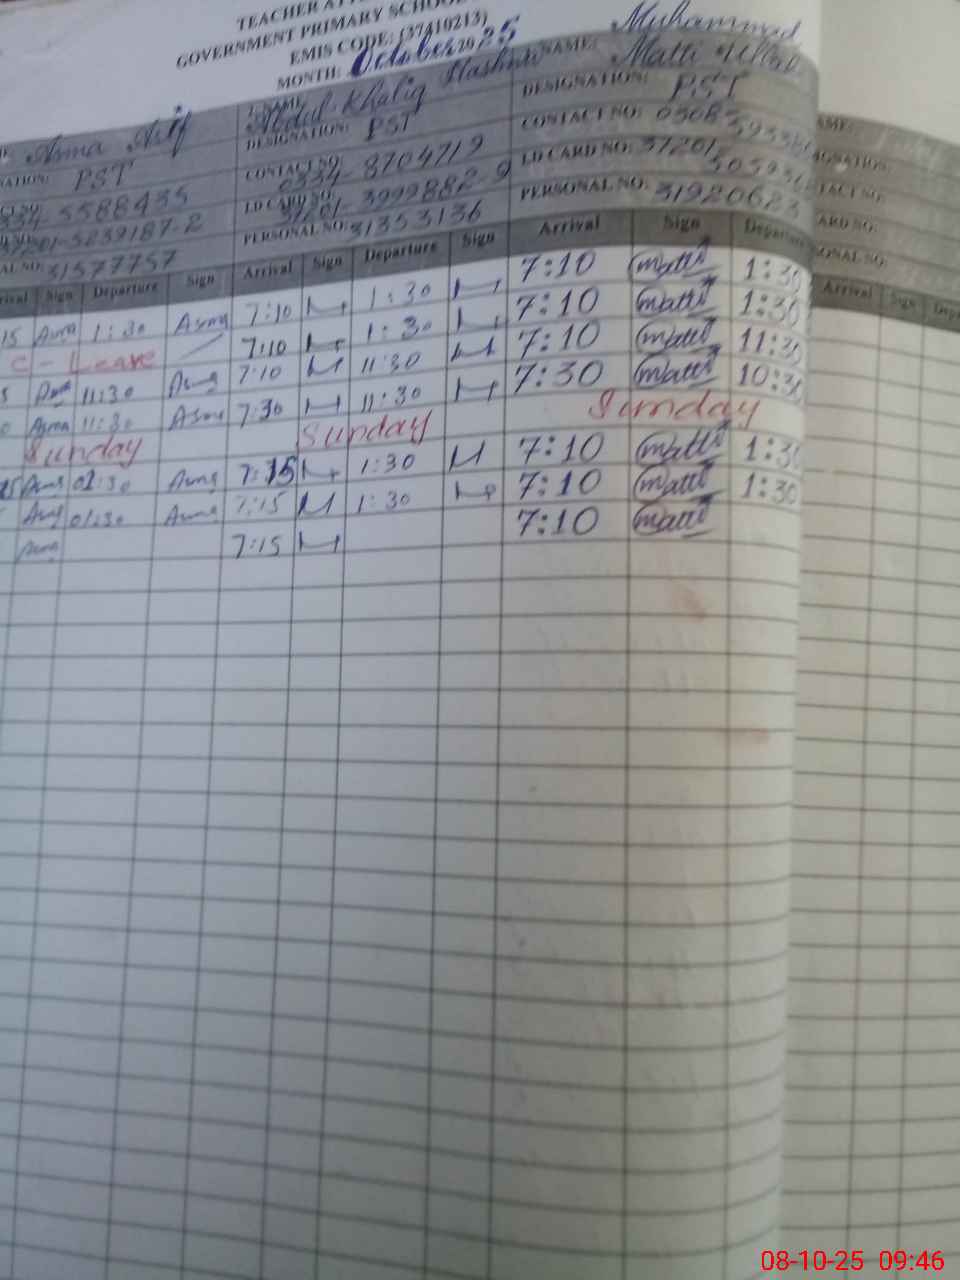 TEACHER
GOVERNMENT PRIMARY SCHOOL
EMIS CODE: (37410213)
MONTH: October 2025
Asma Arif NAME: Abdul Khaliq Hashmi NAME: Muhammad Matti Ullah NAME:
NATION: PST DESIGNATION: PST DESIGNATION: PST
5588435 CONTACT NO: 0334-8704719 CONTACT NO: TACT NO:
5239187-2 I.D CARD NO: 37201-3999882-9 I.D CARD NO: 37201 ARD NO:
AL NO: 31577757 PERSONAL NO: 31353136 PERSONAL NO: 31920623 ONAL NO:
Sign Departure Sign Arrival Sign Departure Sign Arrival Sign Departure Arrival Sign
15 Asma 1:30 Asma 7:10 1:30 7:10 Matti 1:30
C - Leave 7:10 1:30 7:10 Matti 1:30
11:30 7:10 11:30 7:10 Matti 11:30
Asma 11:30 Asma 7:30 11:30 7:30 Matti 10:30
Sunday Sunday Sunday
01:30 7:15 1:30 7:10 Matti 1:30
01:30 7:15 1:30 7:10 Matti 1:30
7:15 7:10 Matti
08-10-25 09:46